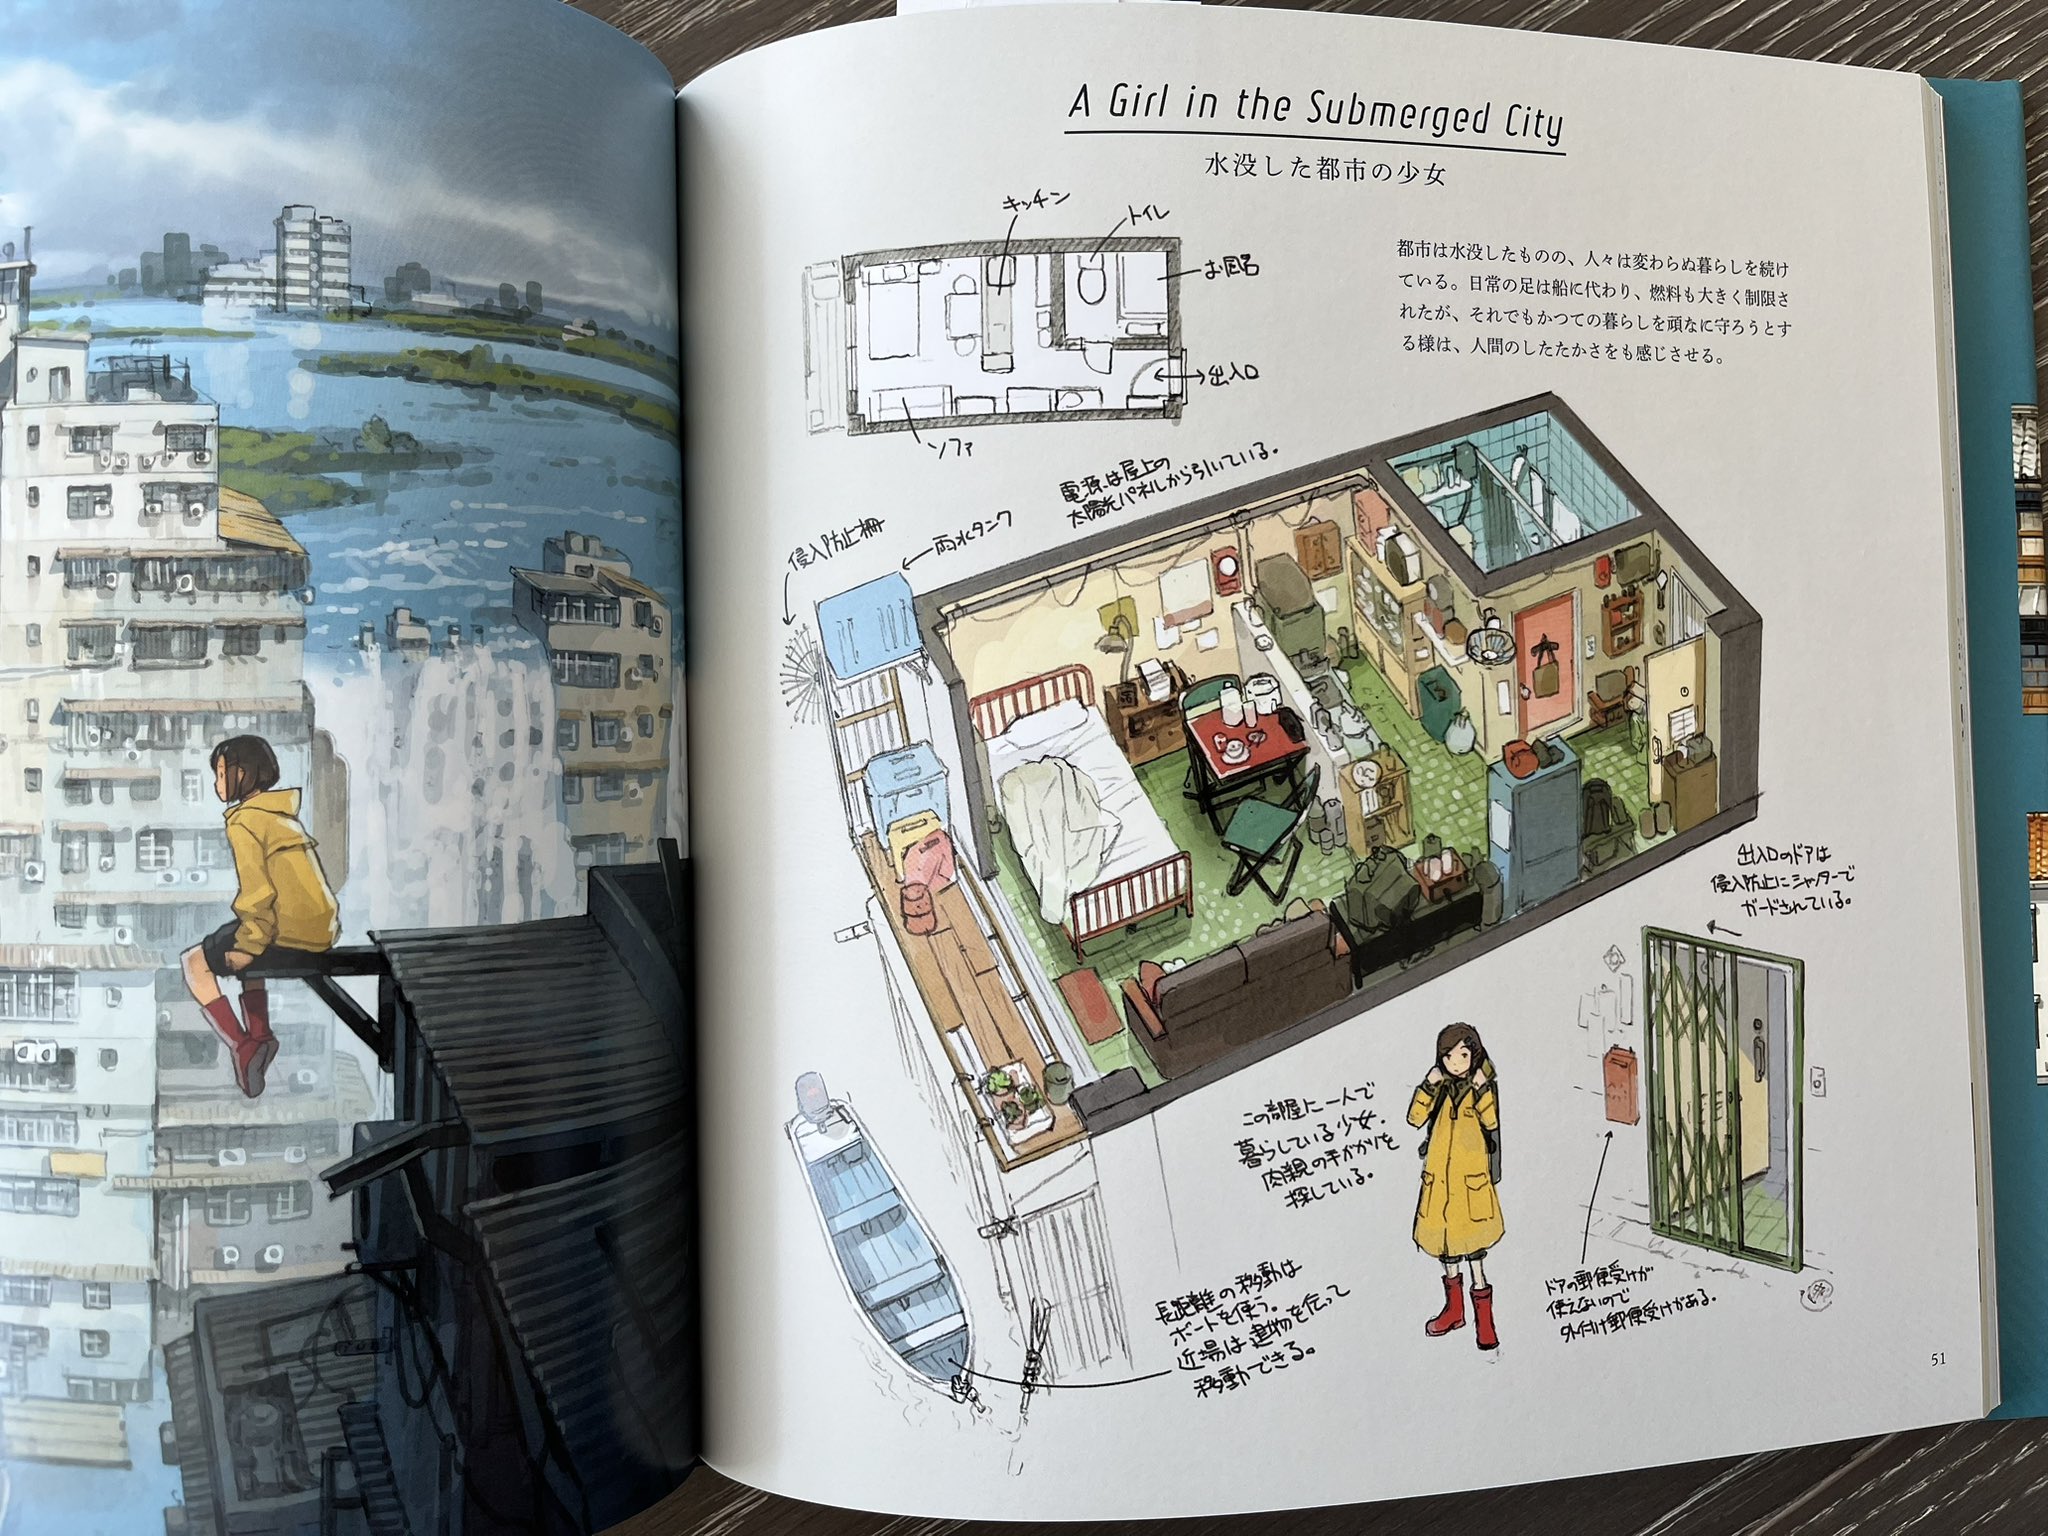 A Girl in the Submerged City
水没した都市の少女
キッチン
トイレ
お風呂
出入口
ソファ
都市は水没したものの、人々は変わらぬ暮らしを続け
ている。日常の足は船に代わり、燃料も大きく制限さ
れたが、それでもかつての暮らしを頑なに守ろうとす
る様は、人間のしたたかさをも感じさせる。
電源は屋上の
太陽光パネルから引いている。
侵入防止柵
雨水タンク
出入口のドアは
侵入防止にシャッターで
ガードされている。
この部屋に一人で
暮らしている少女。
肉親の手がかりを
探している。
長距離の移動は
ボートを使う。
近場は建物を伝って
移動できる。
ドアの郵便受けが
使えないので
外付け郵便受けがある。
51